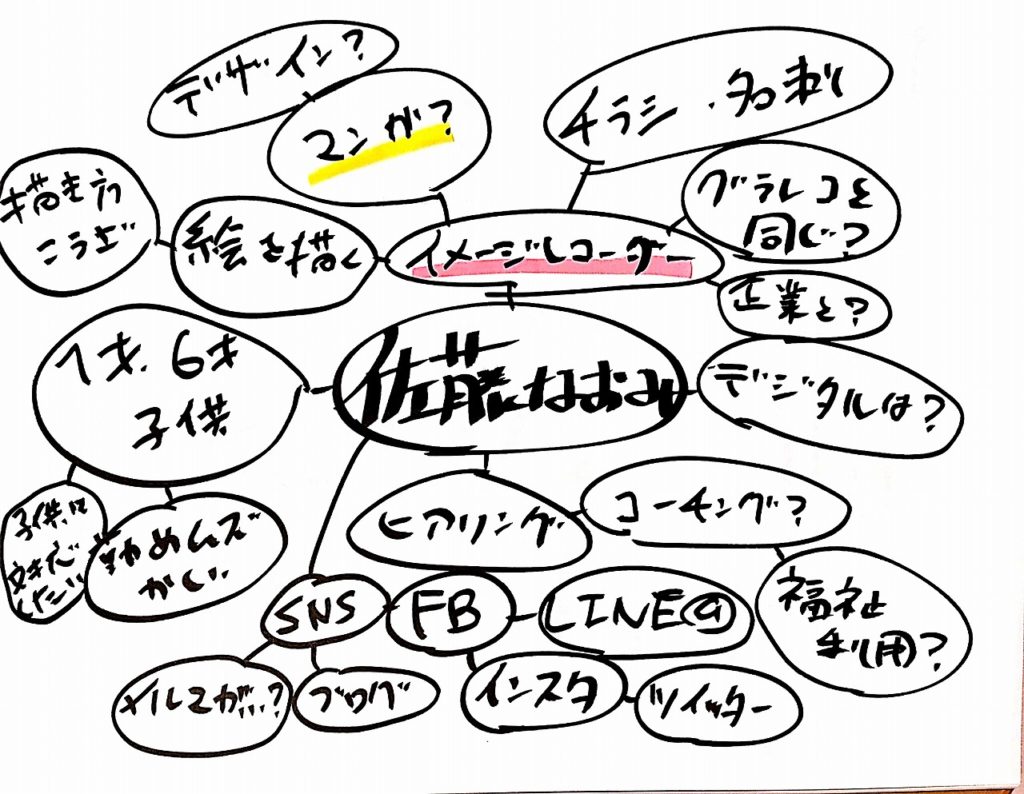 デザイン?
マンガ?
チラシ・名刺
描き方
こうざ
絵を描く
イメージレコーダー
グラレコと
同じ?
企業と?
1才、6才
子供
佐藤なおみ
デジタルは?
子供に
したい
むずかしい
ヒアリング
コーチング?
福祉
利用?
SNS
FB
LINE@
メルマガ…?
ブログ
インスタ
ツイッター